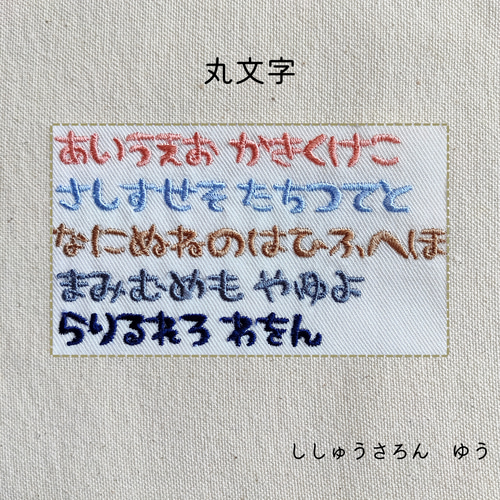 丸文字
あいうえお かきくけこ
さしすせそ たちつてと
なにぬねのはひふへほ
まみむめも やゆよ
らりるれろ わをん
ししゅうさろん ゆう